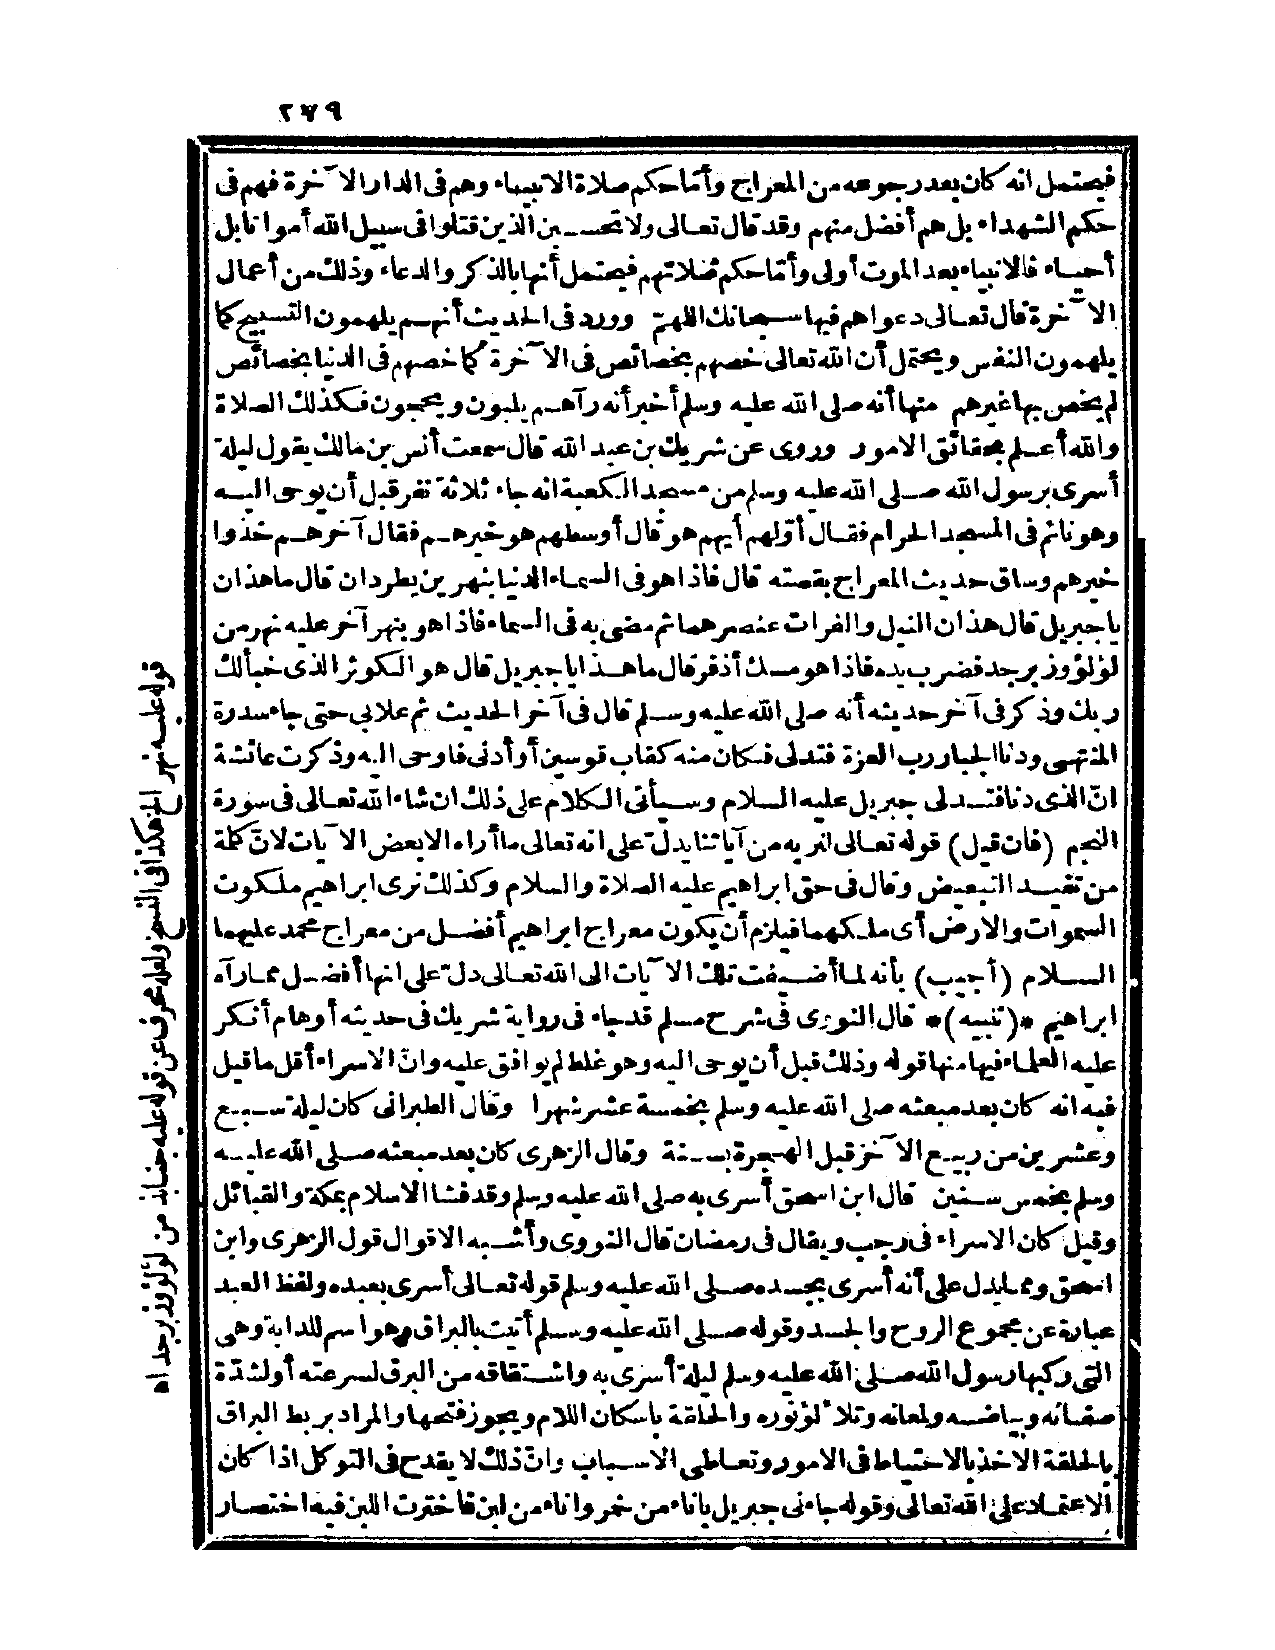 ٢٧٩
فيحتمل انه كان بعد رجوعه من المعراج وأمّا حكم صلاة الانبياء وهم فى الدار الآخرة فهم فى
حكم الشهداء بل هم أفضل منهم وقد قال تعالى ولا تحسبن الذين قتلوا فى سبيل الله أمواتا بل
أحياء فالانبياء بعد الموت أولى وأمّا حكم صلاتهم فيحتمل أنها بالذكر والدعاء وذلك من أعمال
الآخرة قال تعالى دعواهم فيها سبحانك اللهمّ وورد فى الحديث أنهم يلهمون التسبيح كما
يلهمون النفس ويحتمل أن الله تعالى خصهم بخصائص فى الآخرة كما خصهم فى الدنيا بخصائص
لم يخص بها غيرهم منها أنه صلى الله عليه وسلم أخبر أنه رآهم يلبون ويحجون فكذلك الصلاة
والله أعلم بحقائق الامور وروى عن شريك بن عبد الله قال سمعت أنس بن مالك يقول ليلة
أسرى برسول الله صلى الله عليه وسلم من مسجد الكعبة انه جاء ثلاثة نفر قبل أن يوحى اليه
وهو نائم فى المسجد الحرام فقال أوّلهم أيهم هو قال أوسطهم هو خيرهم فقال آخرهم خذوا
خيرهم وساق حديث المعراج بقصته قال فاذا هو فى السماء الدنيا بنهرين يطردان قال ما هذان
يا جبريل قال هذان النيل والفرات عنصرهما ثم مضى به فى السماء فاذا هو بنهر آخر عليه نهر من
لؤلؤ وزبرجد فضرب يده فاذا هو مسك أذفر قال ما هذا يا جبريل قال هو الكوثر الذى خبأ لك
ربك وذكر فى آخر حديثه أنه صلى الله عليه وسلم قال فى آخر الحديث ثم علا بى حتى جاء سدرة
المنتهى ودنا الجبار رب العزة فتدلى فكان منه كقاب قوسين أو أدنى فاوحى اليه وذكرت عائشة
انّ الذى دنا فتدلى جبريل عليه السلام وسيأتى الكلام على ذلك ان شاء الله تعالى فى سورة
النجم (فان قيل) قوله تعالى لنريه من آياتنا يدلّ على انه تعالى ما أراه الا بعض الآيات لانّ كلمة
من تفيد التبعيض وقال فى حق ابراهيم عليه الصلاة والسلام وكذلك نرى ابراهيم ملكوت
السموات والارض أى ملكهما فيلزم أن يكون معراج ابراهيم أفضل من معراج محمد عليهما
السلام (أجيب) بأنه لما أضيفت تلك الآيات الى الله تعالى دلّ على انها أفضل مما رآه
ابراهيم *(تنبيه)* قال النووى فى شرح مسلم قد جاء فى رواية شريك فى حديثه أوهام أنكر
عليه العلماء فيها منها قوله وذلك قبل أن يوحى اليه وهو غلط لم يوافق عليه وانّ الاسراء أقل ما قيل
فيه انه كان بعد مبعثه صلى الله عليه وسلم بخمسة عشر شهرا وقال الطبرانى كان ليلة سبع
وعشرين من ربيع الآخر قبل الهجرة بسنة وقال الزهرى كان بعد مبعثه صلى الله عليه
وسلم بخمس سنين قال ابن اسحق أسرى به صلى الله عليه وسلم وقد فشا الاسلام بمكة والقبائل
وقيل كان الاسراء فى رجب ويقال فى رمضان قال النووى وأشبه الاقوال قول الزهرى وابن
اسحق ومما يدل على أنه أسرى بجسده صلى الله عليه وسلم قوله تعالى أسرى بعبده ولفظ العبد
عبارة عن مجموع الروح والجسد وقوله صلى الله عليه وسلم أتيت بالبراق وهو اسم للدابة وهى
التى ركبها رسول الله صلى الله عليه وسلم ليلة أسرى به واشتقاقه من البرق لسرعته أو لشدّة
صفائه وبياضه ولمعانه وتلألؤ نوره والحلقة باسكان اللام ويجوز فتحها والمراد بربط البراق
بالحلقة الاخذ بالاحتياط فى الامور وتعاطى الاسباب وانّ ذلك لا يقدح فى التوكل اذا كان
الاعتماد على الله تعالى وقوله جاءنى جبريل باناء من خمر واناء من لبن فاخترت اللبن فيه اختصار
قوله عليه نهر الخ هكذا فى النسخ ولعله محرف عن قوله عليه جنابذ من لؤلؤ وزبرجد اه